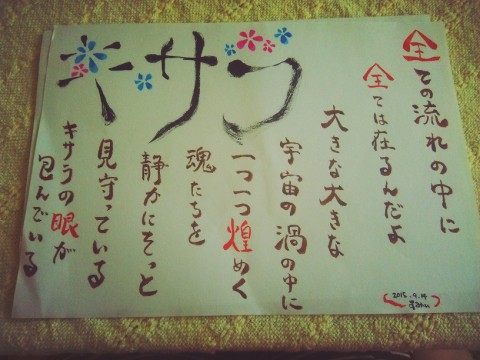 キサラ
全ての流れの中に
全ては在るんだよ
大きな大きな
宇宙の渦の中に
一つ一つ煌めく
魂たちを
静かにそっと
見守っている
キサラの眼が
包んでいる
2015.9.14